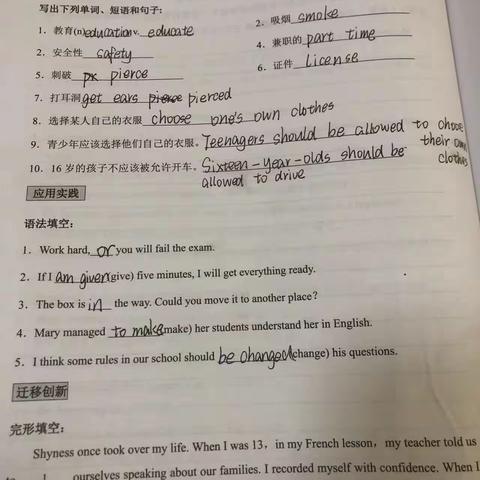 写出下列单词、短语和句子:
1. 教育(n)education v. educate
2. 吸烟 smoke
2. 安全性 safety
4. 兼职的 part time
5. 刺破 pierce
6. 证件 license
7. 打耳洞 get ears pierce pierced
8. 选择某人自己的衣服 choose one's own clothes
9. 青少年应该选择他们自己的衣服。Teenagers should be allowed to choose their own clothes
10. 16 岁的孩子不应该被允许开车。Sixteen-year-olds should be allowed to drive
应用实践
语法填空:
1. Work hard, or you will fail the exam.
2. If I am given (give) five minutes, I will get everything ready.
3. The box is in the way. Could you move it to another place?
4. Mary managed to make (make) her students understand her in English.
5. I think some rules in our school should be changed (change) his questions.
迁移创新
完形填空:
Shyness once took over my life. When I was 13, in my French lesson, my teacher told us
to 1 ourselves speaking about our families. I recorded myself with confidence. When I